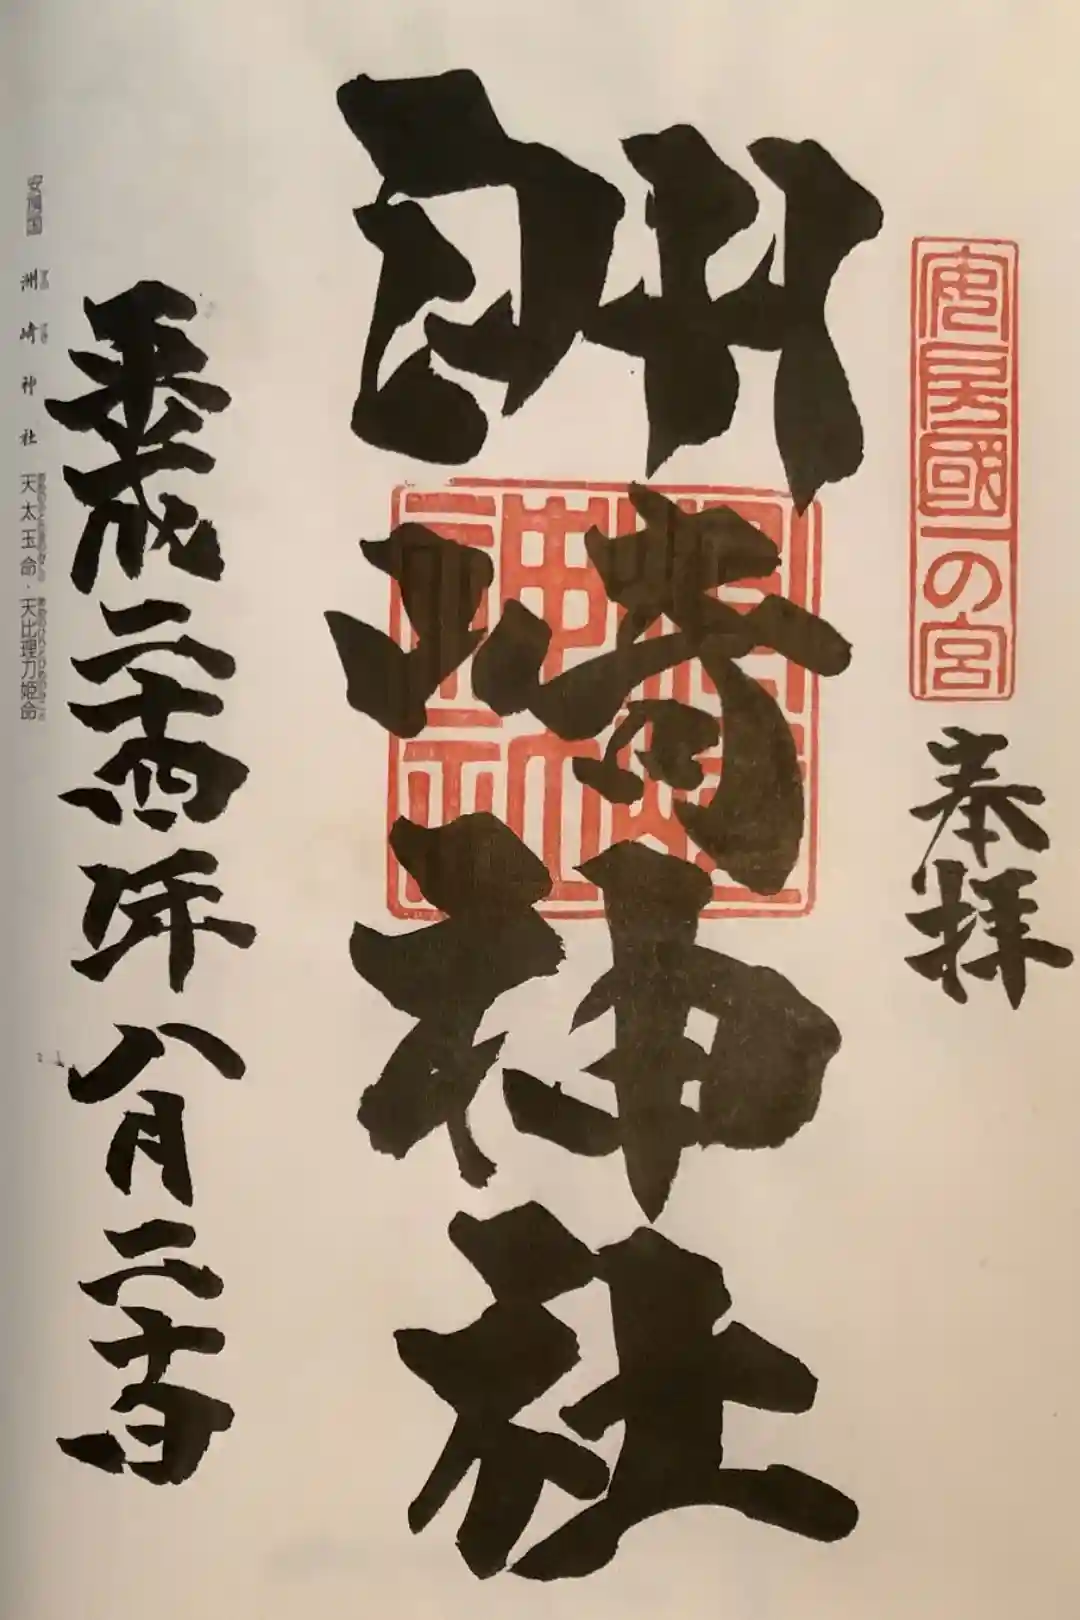 安房國一の宮
奉拝
洲崎神社
平成二十四年八月二十日
安房国 洲崎神社 天太玉命・天比理刀姫命